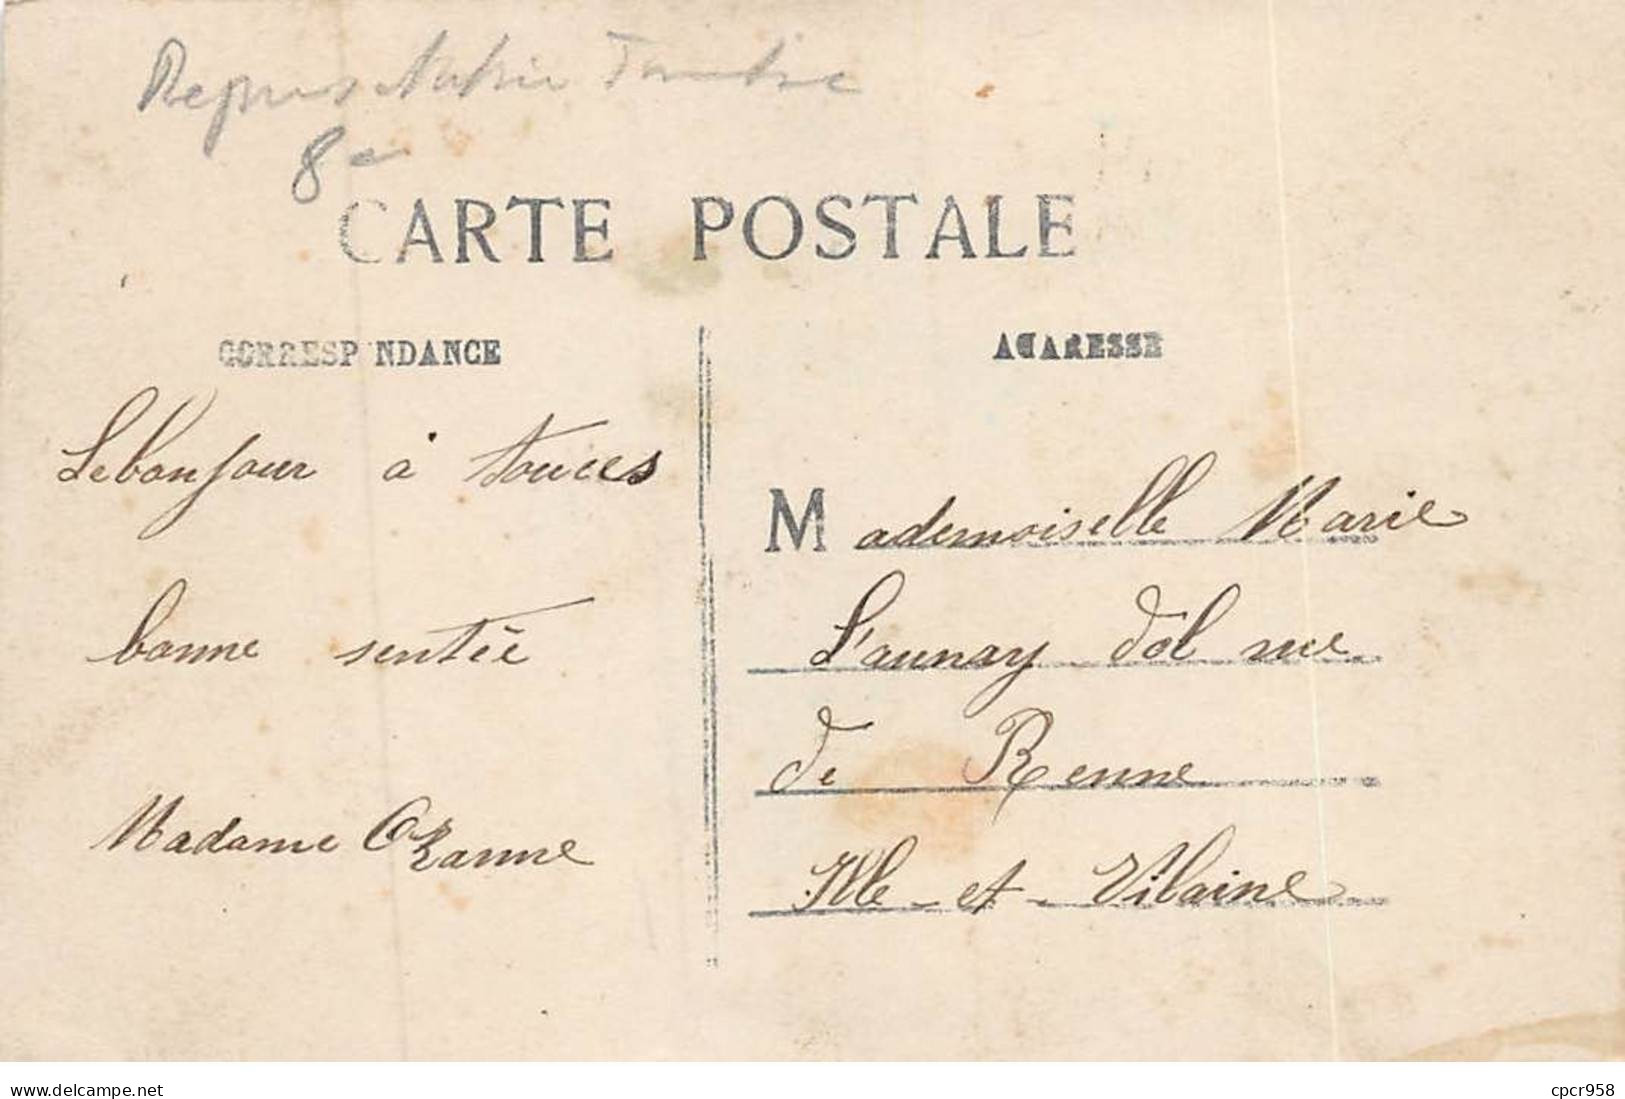 8e
CARTE POSTALE
CORRESP NDANCE
Le bonjour à toutes
bonne sentée
Madame Ozanne
ADARESSE
Mademoiselle Marie
L'aunay Dol rue
de Renne
Ille-et-Vilaine
www.delcampe.net
cpcr958